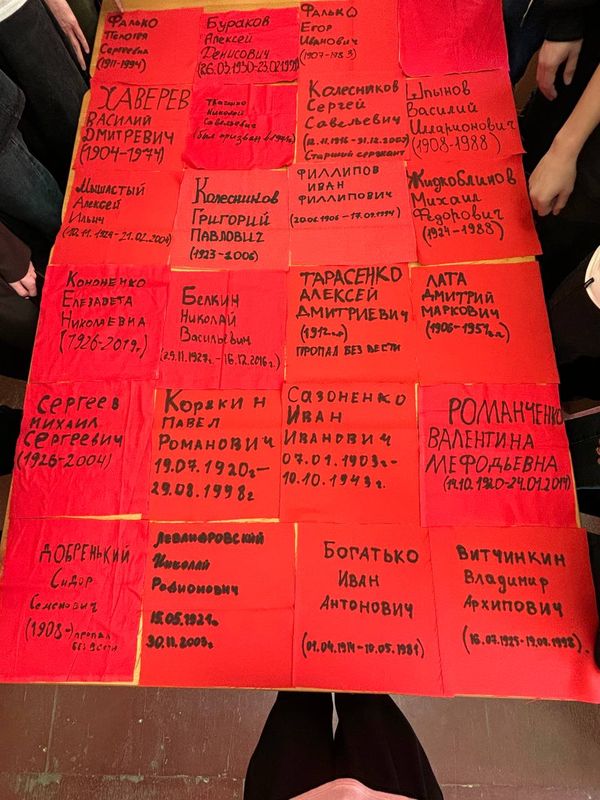 Фалько
Пелогея
Сергеевна
(1911-1994)
Бураков
Алексей
Денисович
Фалько
Егор
Иванович
ХАВЕРЕВ
ВАСИЛИЙ
ДМИТРЕВИЧ
(1904-1974)
Николай
Савельевич
Колесников
Сергей
Савельевич
(12.11.1916-31.12.2007)
Старший сержант
Василий
Илларионович
(1908-1988)
Мышастый
Алексей
Ильич
Колесников
ГРИГОРИЙ
ПАВЛОВИЧ
(1923-2006)
ФИЛЛИПОВ
ИВАН
ФИЛЛИПОВИЧ
(20.06.1906-17.09.1994)
Жидкоблинов
Михаил
Федорович
(1924-1988)
Кононенко
Елезавета
Николаевна
(1926-2019г)
Белкин
Николай
Васильевич
(29.11.1927г-16.12.2016г.)
ТАРАСЕНКО
АЛЕКСЕЙ
ДМИТРИЕВИЧ
ПРОПАЛ БЕЗ ВЕСТИ
ЛАТА
ДМИТРИЙ
МАРКОВИЧ
Сергеев
МИХАИЛ
СЕРГЕЕВИЧ
(1926-2004)
Корякин
ПАВЕЛ
РОМАНОВИЧ
19.07.1920г-
29.08.1998г
САЗОНЕНКО
ИВАН
ИВАНОВИЧ
07.01.1903г-
10.10.1943г.
РОМАНЧЕНКО
ВАЛЕНТИНА
МЕФОДЬЕВНА
(14.10.1920-24.01.2014)
ДОБРЕНЬКИЙ
Сидор
Семенович
(1908-) пропал
без вести
Николай
Родионович
15.05.1921г
30.11.2007г
БОГАТЬКО
ИВАН
АНТОНОВИЧ
(01.04.1914-10.05.1981)
ВИТЧИНКИН
Владимир
АРХИПОВИЧ